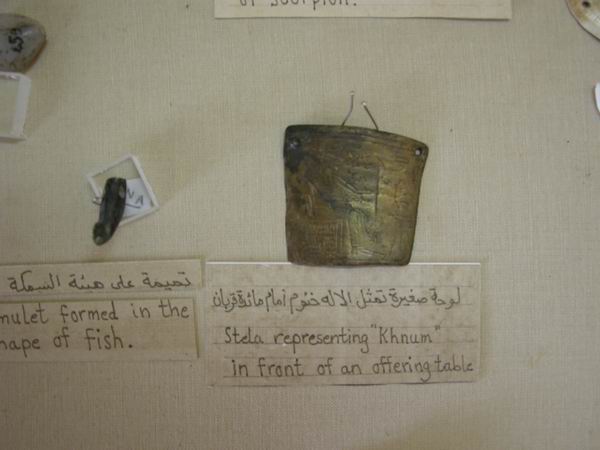 of scorpion.
تميمة على هيئة السمكة
mulet formed in the
hape of fish.
لوحة صغيرة تمثل الاله خنوم أمام مائدة قربان
Stela representing "Khnum"
in front of an offering table